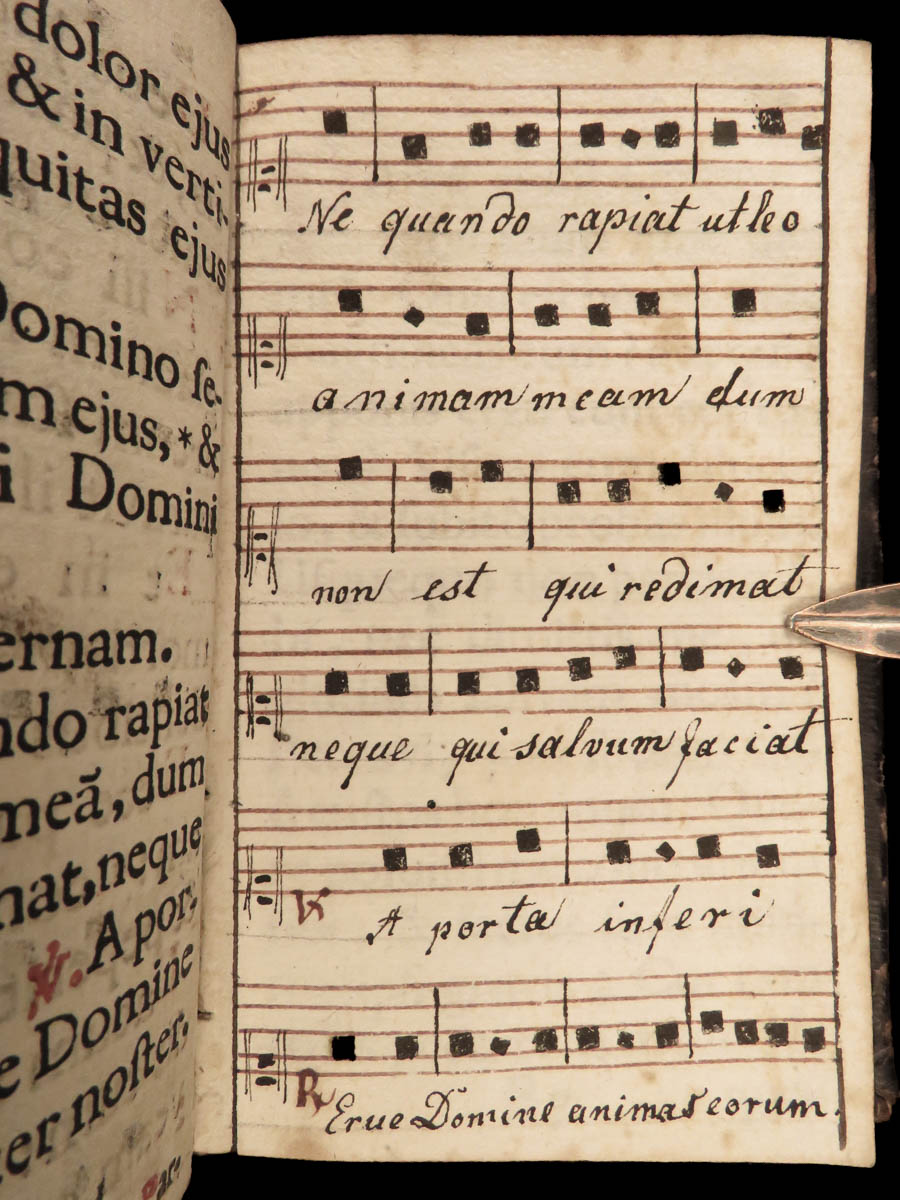 dolor ejus
& in verti-
quitas ejus
Domino ſe-
m ejus, * &
i Domini
ernam.
ndo rapiat
meã, dum
mat, neque
℣. A por-
e Domine
ter noſter.
Ne quando rapiat ut leo
animam meam dum
non est qui redimat
neque qui salvum faciat
℣ A porta inferi
℟ Erue Domine animas eorum.